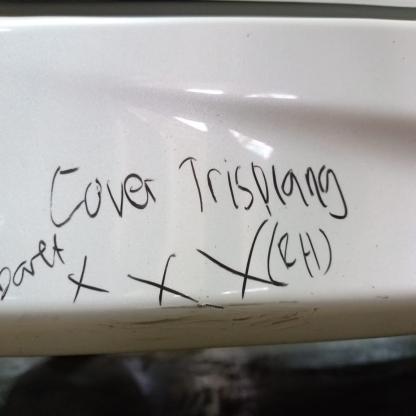 Cover Trisplang
Baret X X X (RH)